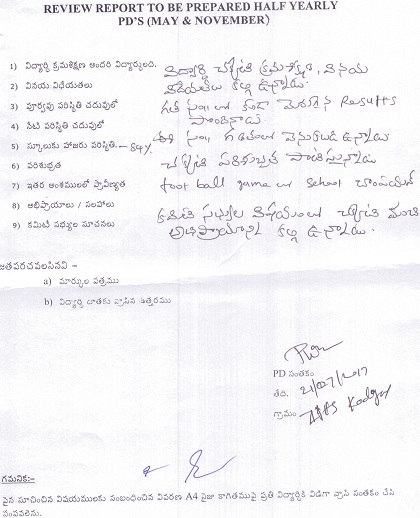 REVIEW REPORT TO BE PREPARED HALF YEARLY
PD'S (MAY & NOVEMBER)
1) విద్యార్థి క్రమశిక్షణ అందరి విద్యార్థులది. విద్యార్థి చక్కని క్రమశిక్షణ, వినయ
2) వినయ విధేయతలు విధేయతలు కల్గి ఉన్నాడు.
3) పూర్వపు పరిస్థితి చదువులో గత కంటే మెరుగైన Results
4) నేటి పరిస్థితి చదువులో పొందినాడు.
5) స్కూలుకు హాజరు పరిస్థితి - 84% ఈ వెనుకబడి ఉన్నాడు
6) పరిశుభ్రత చక్కని పరిశుభ్రత పాటిస్తున్నాడు
7) ఇతర అంశములలో ప్రావీణ్యత foot ball game లో school చాంపియన్
8) అభిప్రాయాలు / సలహాలు కమిటీ సభ్యుల విషయంలో చక్కని మంచి
9) కమిటీ సభ్యుల సూచనలు అభిప్రాయాన్ని కల్గి ఉన్నాడు.
జతపరచవలసినవి :-
a) మార్కుల పత్రము
b) విద్యార్థి దాతకు వ్రాసిన ఉత్తరము
PD సంతకం
తేది. 21/07/2017
గ్రామం
గమనిక:-
పైన సూచించిన విషయములకు సంబంధించిన వివరణ A4 సైజు కాగితముపై ప్రతి విద్యార్థికి విడిగా వ్రాసి సంతకం చేసి
పంపవలెను.